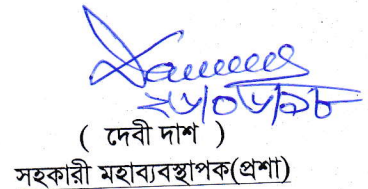 ২৮/০৮/১৮
( দেবী দাশ )
সহকারী মহাব্যবস্থাপক(প্রশা)